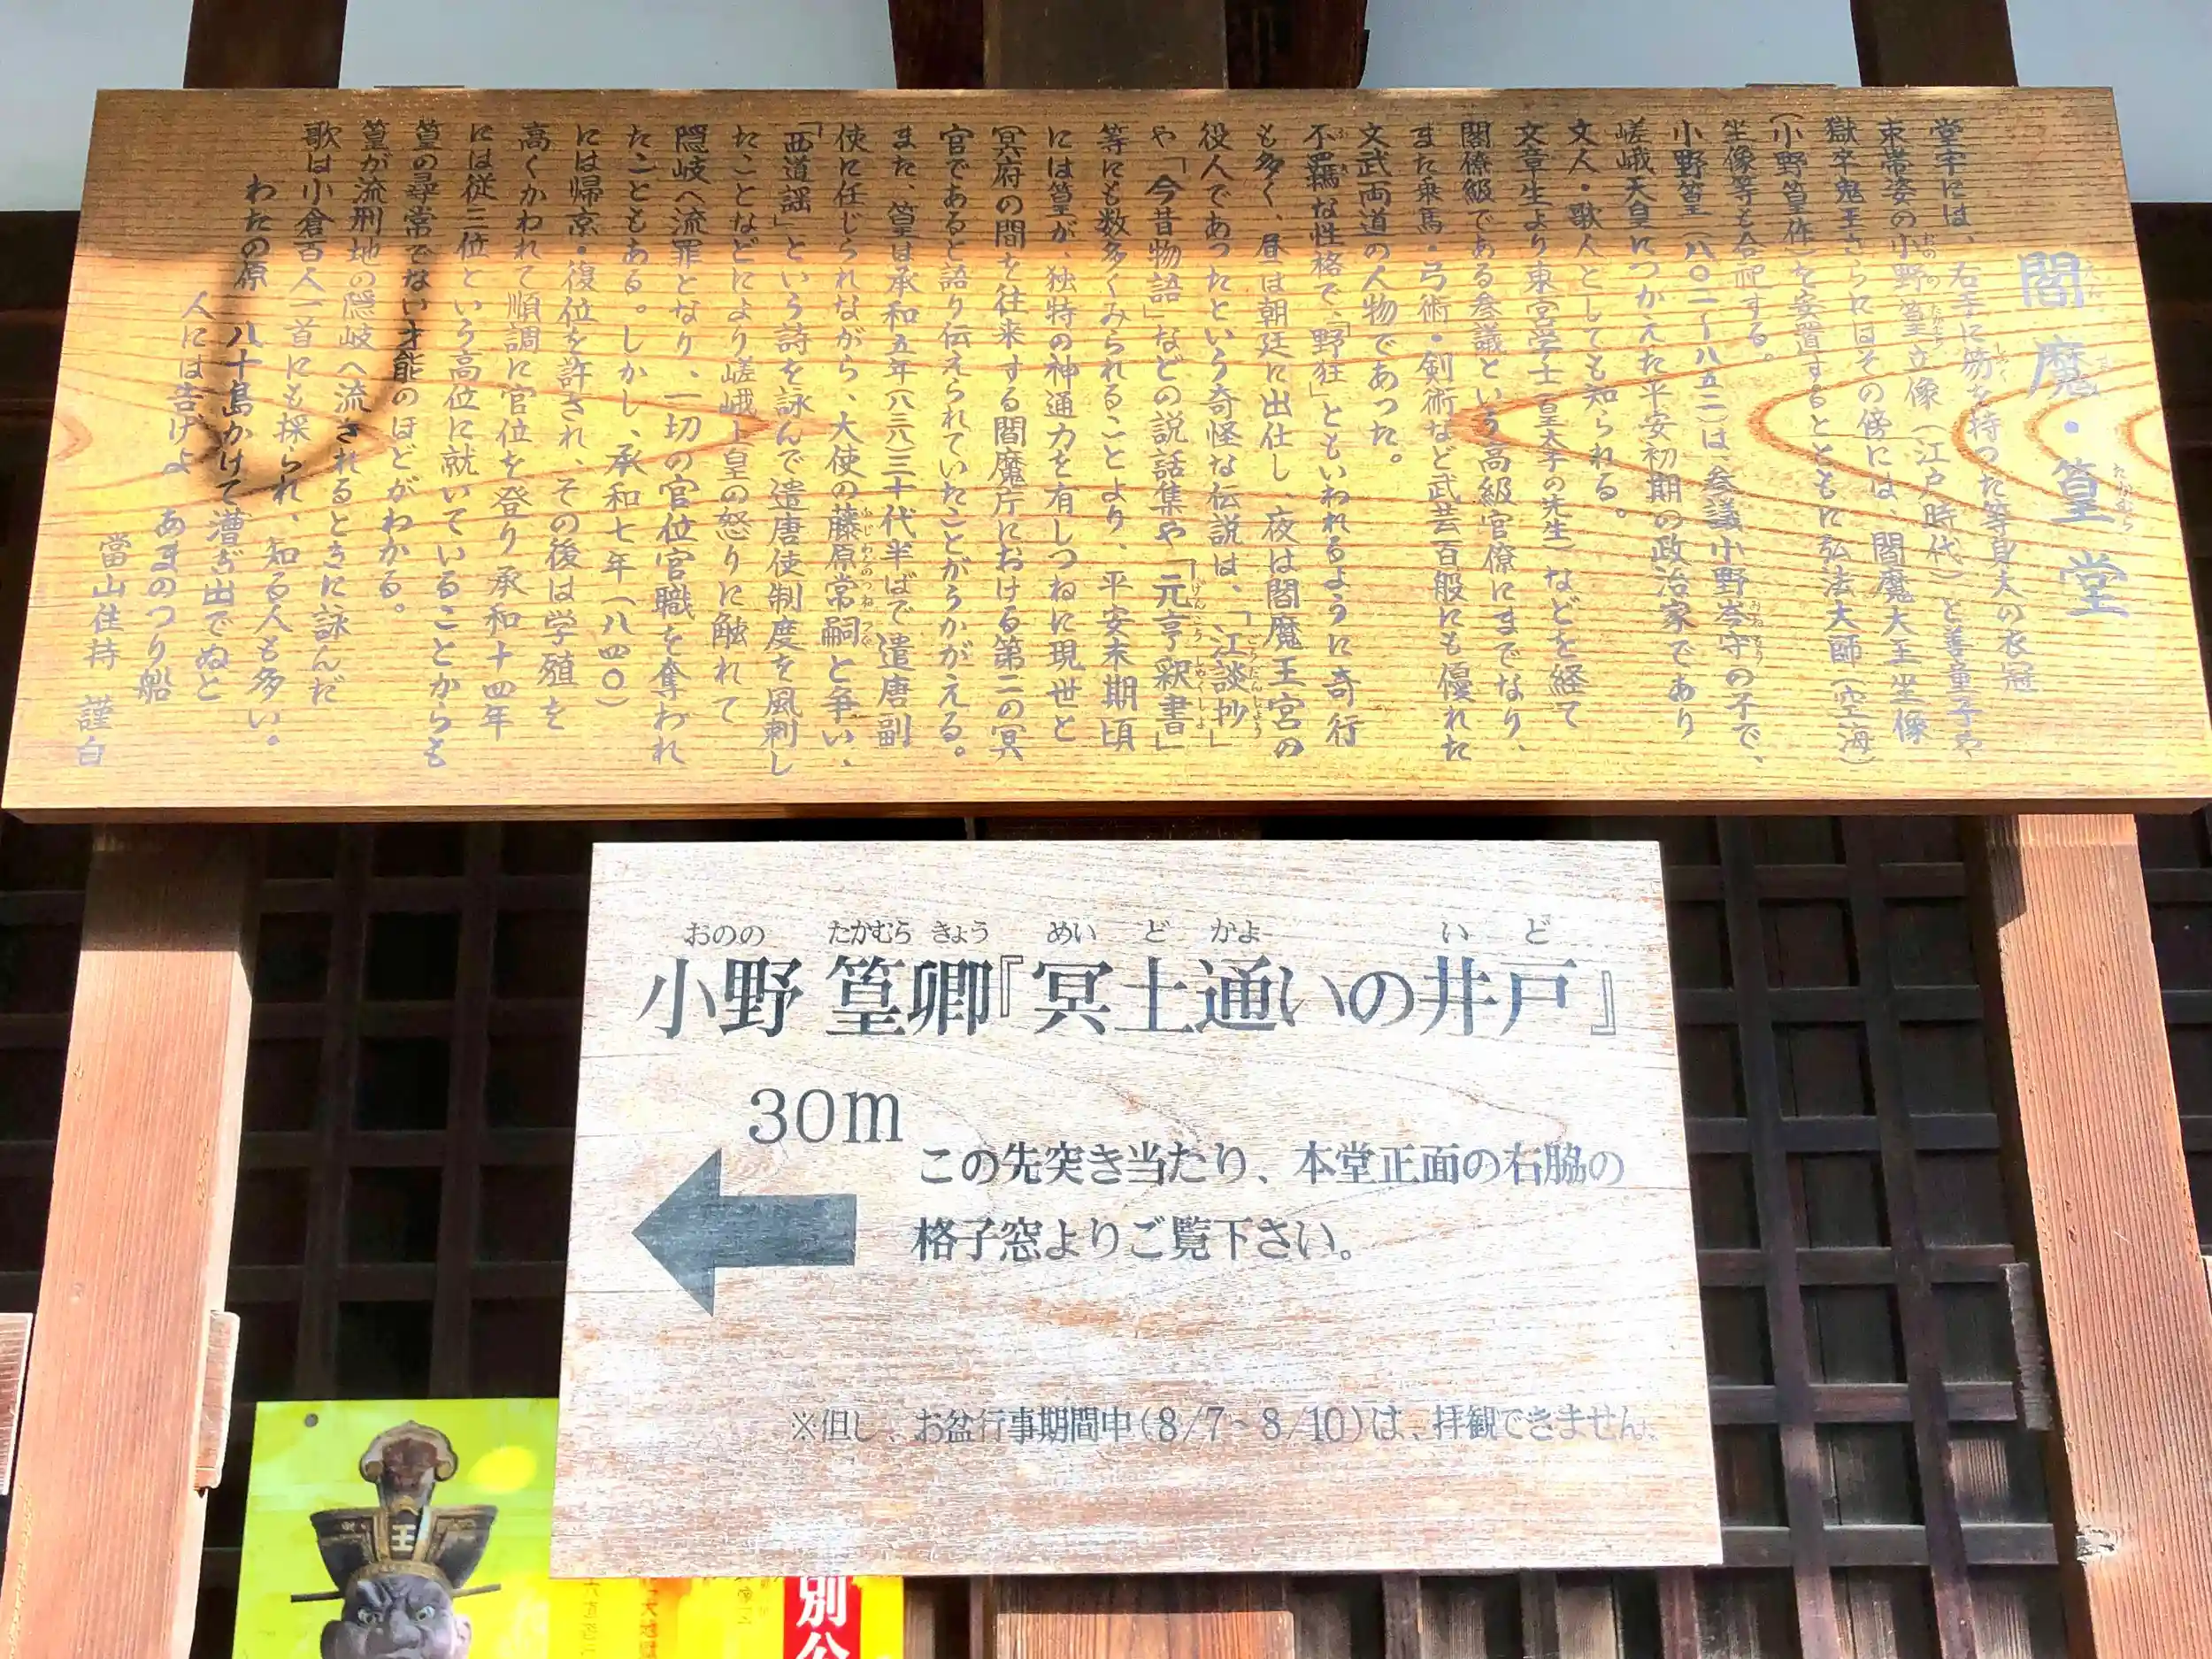 閻魔・篁堂
堂宇には、右手に笏を持った等身大の衣冠
束帯姿の小野篁立像(江戸時代)と善童子や
獄卒鬼王さらにはその傍には、閻魔大王坐像
(小野篁作)を安置するとともに弘法大師(空海)
坐像等も合祀する。
小野篁(八〇二〜八五二)は参議小野岑守の子で、
嵯峨天皇につかえた平安初期の政治家であり
文人・歌人としても知られる。
文章生より東宮学士(皇太子の先生)などを経て
閣僚級である参議という高級官僚にまでなり、
また乗馬・弓術・剣術など武芸百般にも優れた
文武両道の人物であった。
不羈な性格で、「野狂」ともいわれるように奇行
も多く、昼は朝廷に出仕し、夜は閻魔王宮の
役人であったという奇怪な伝説は、「江談抄」
や「今昔物語」などの説話集や「元亨釈書」
等にも数多くみられることより、平安末期頃
には篁が、独特の神通力を有しつねに現世と
冥府の間を往来する閻魔庁における第二の冥
官であると語り伝えられていたことがうかがえる。
また、篁は承和五年(八三八)三十代半ばで遣唐副
使に任じられながら、大使の藤原常嗣と争い、
「西道謡」という詩を詠んで遣唐使制度を風刺し
たことなどにより嵯峨上皇の怒りに触れて
隠岐へ流罪となり、一切の官位官職を奪われ
たこともある。しかし、承和七年(八四〇)
には帰京・復位を許され、その後は学殖を
高くかわれて順調に官位を登り承和十四年
には従三位という高位に就いていることからも
篁の尋常でない才能のほどがわかる。
篁が流刑地の隠岐へ流されるときに詠んだ
歌は小倉百人一首にも採られ、知る人も多い。
わたの原 八十島かけて漕ぎ出でぬと
人には告げよ あまのつり船
當山住持 謹白
おのの たかむら きょう めい ど かよ い ど
小野 篁卿『冥土通いの井戸』
30m
この先突き当たり、本堂正面の右脇の
格子窓よりご覧下さい。
※但し、お盆行事期間中(8/7~8/10)は、拝観できません。
王
別公